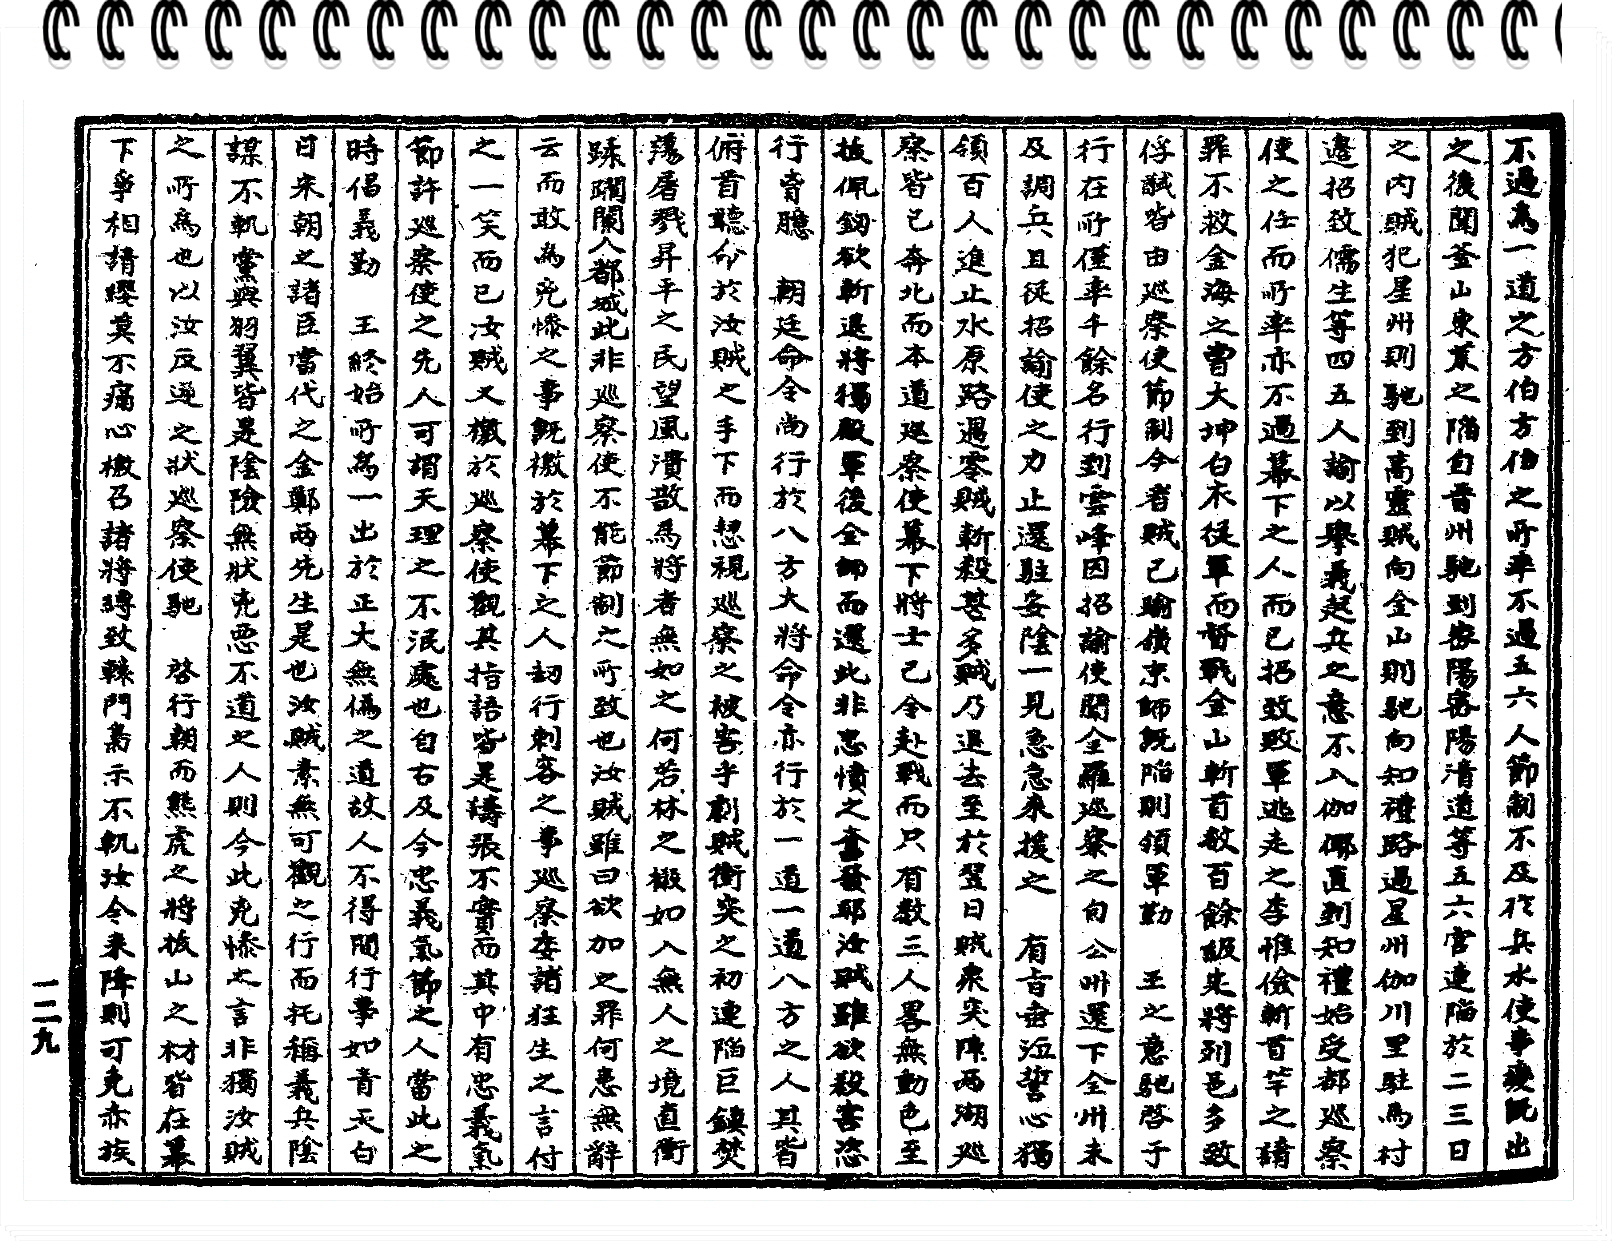 不過爲一道之方伯方伯之所率不過五六人節制不及於兵水使事變旣出
之後聞釜山東萊之陷自晋州馳到密陽密陽淸道等五六官連陷於二三日
之內賊犯星州則馳到高靈賊向金山則馳向知禮路過星州伽川里駐馬村
邊招致儒生等四五人諭以擧義起兵之意不入伽倻直到知禮始受都巡察
使之任而所率亦不過幕下之人而已招致敗軍逃走之李惟儉斬首竿之請
罪不救金海之曺大坤白衣從軍而督戰金山斬首數百餘級朱將列邑多致
俘馘皆由巡察使節制今者賊已踰嶺京師旣陷則領軍勤 王之意馳啓于
行在所僅率千餘名行到雲峰因招諭使聞全羅巡察之向公州還下全州未
及調兵且從招諭使之力止還駐安陰一見急急來援之 有旨垂泣誓心獨
領百人進止水原路遇零賊斬殺甚多賊乃退去至於翌日賊衆突陣兩湖巡
察皆已奔北而本道巡察使幕下將士已令赴戰而只有數三人畧無動色至
拔佩釰欲斬退將獨殿軍後全師而還此非忠憤之奮發耶汝賊雖欲殺害恣
行胷臆 朝廷命令尙行於八方大將命令亦行於一道一道八方之人其皆
俯首聽命於汝賊之手下而恝視巡察之被害乎劇賊衝突之初連陷巨鎭焚
蕩屠戮昇平之民望風潰散爲將者無如之何若林之椴如入無人之境直衝
蹂躙闌入都城此非巡察使不能節制之所致也汝賊雖曰欲加之罪何患無辭
云而敢爲兇慘之事旣檄於幕下之人刦行刺客之事巡察委諸狂生之言付
之一笑而已汝賊又檄於巡察使觀其指語皆是譸張不實而其中有忠義氣
節許巡察使之先人可謂天理之不泯處也自古及今忠義氣節之人當此之
時倡義勤 王終始所爲一出於正大無僞之道故人不得間行事如靑天白
日宋朝之諸臣當代之金鄭兩先生是也汝賊素無可觀之行而托稱義兵陰
謀不軌黨與羽翼皆是陰險無狀兇惡不道之人則今此兇慘之言非獨汝賊
之所爲也以汝反逆之狀巡察使馳 啓行朝而熊虎之將拔山之材皆在幕
下爭相請纓莫不痛心檄召諸將縛致轅門梟示不軌汝令來降則可免赤族
一二九